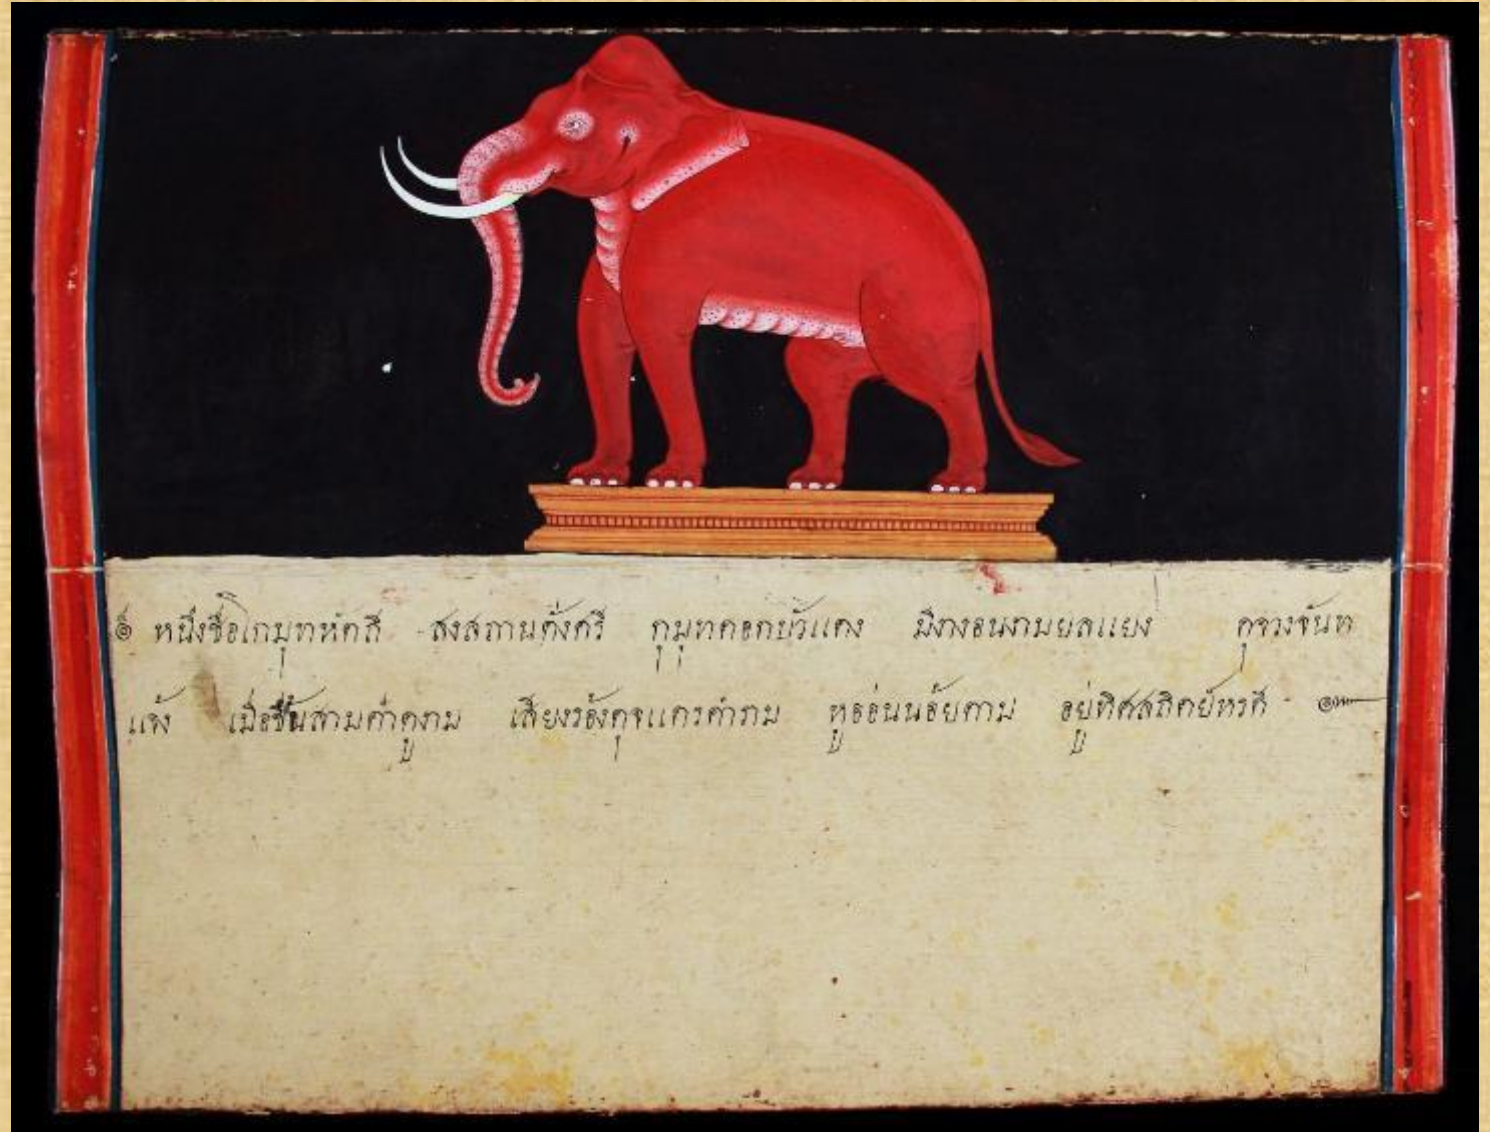 ๏ หนึ่งชื่อโกมุทหัตถี สงสถานดั่งศรี กุมุทดอกบัวแดง มีงางอนงามยลแยง ดุจวงจันท
แจ้ง เมื่อขึ้นสามค่ำดูงาม เสียงร้องดุจแตรคำราม หูอ่อนน้อยตาม อยู่ทิศ